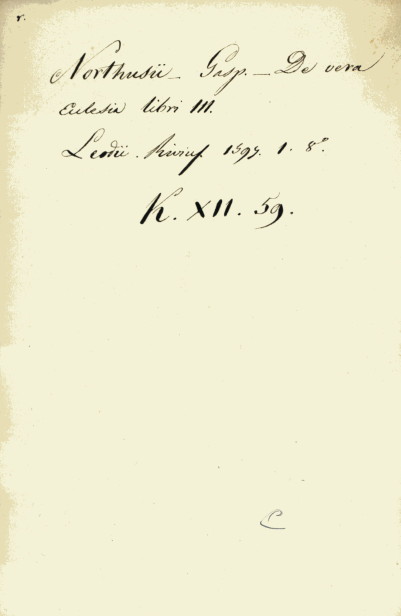 r.
Northusii - Gasp. - De vera
Eclesia libri III.
Leodii. 1. 8°.
K. XII. 59.